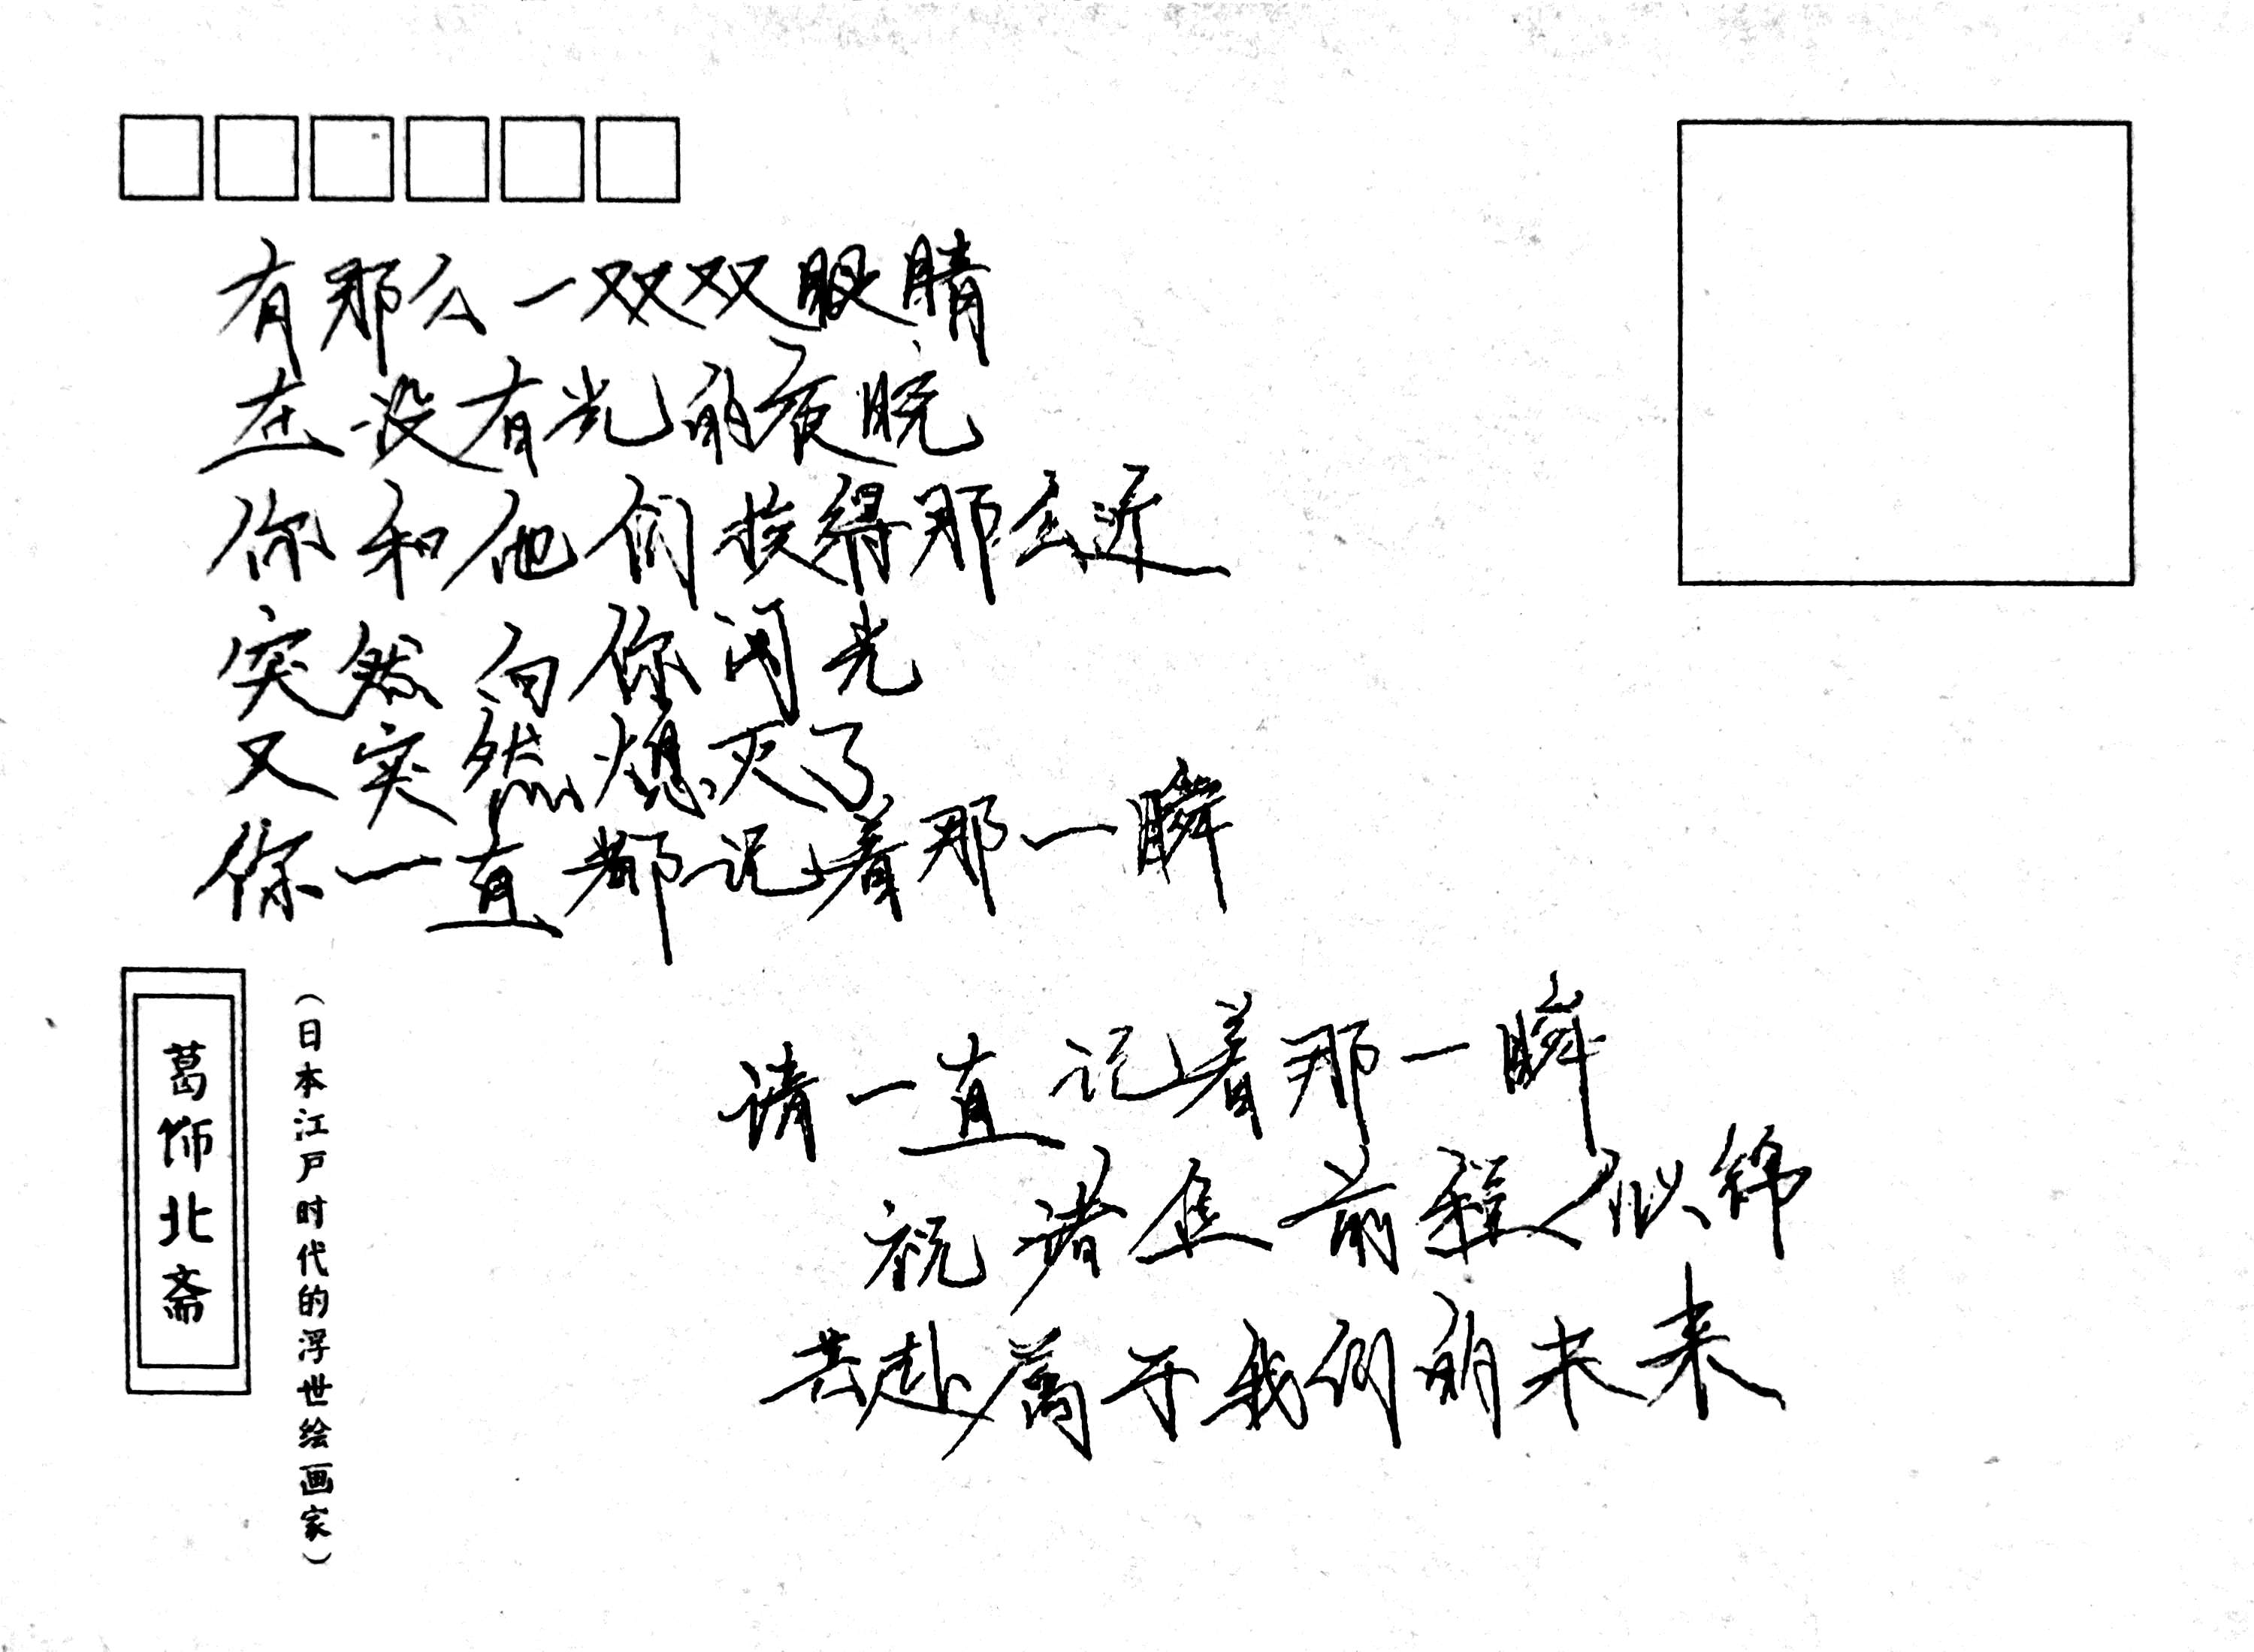 有那么一双双眼睛
在没有光的夜晚
你和他们挨得那么近
突然向你闪光
又突然熄灭了
你一直都记着那一瞬
请一直记着那一瞬
祝诸位前程似锦
去赴属于我们的未来
葛饰北斋
（日本江户时代的浮世绘画家）